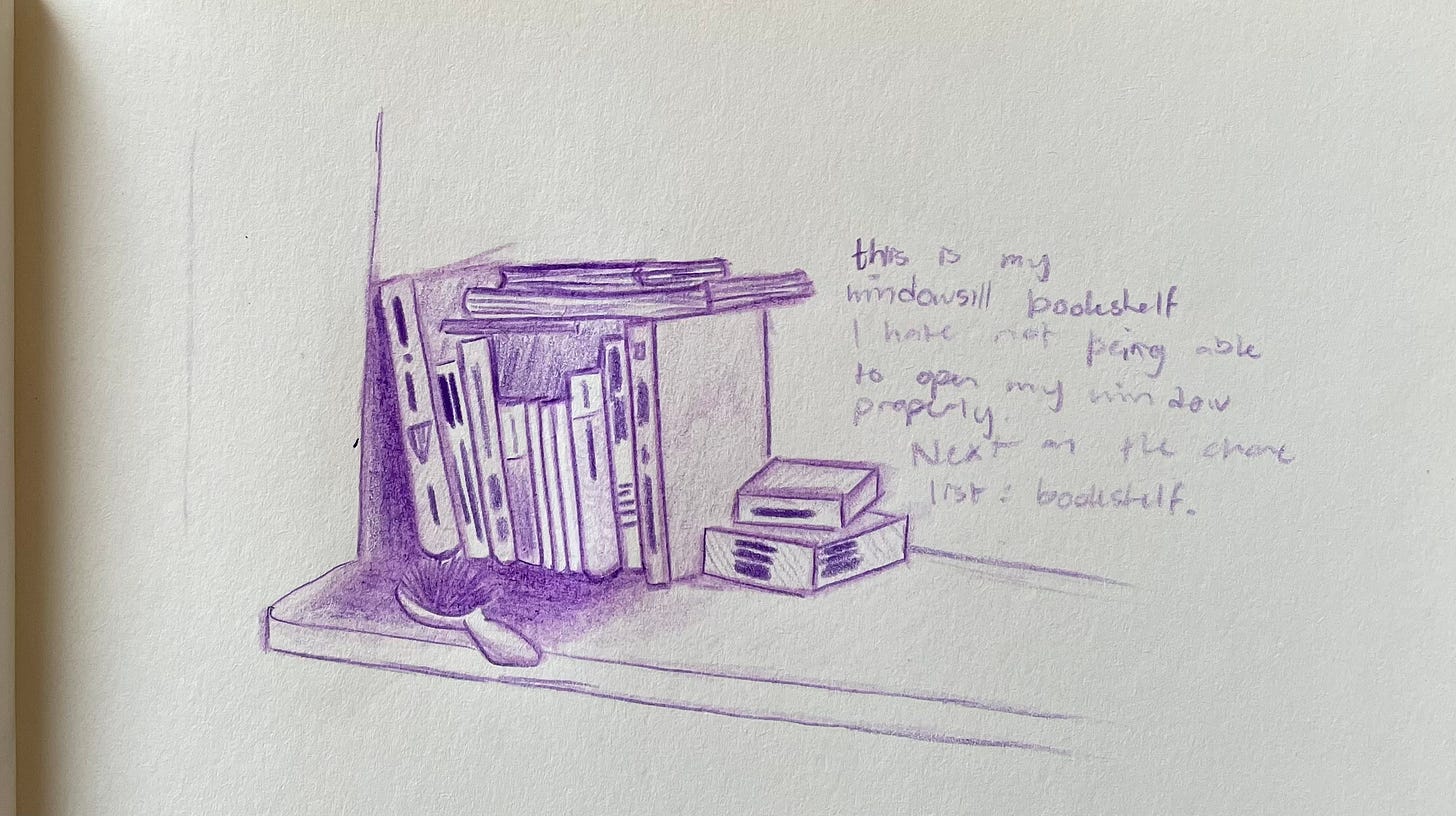 this is my
windowsill bookshelf
I have not being able
to open my window
properly.
Next on the chore
list : bookshelf.